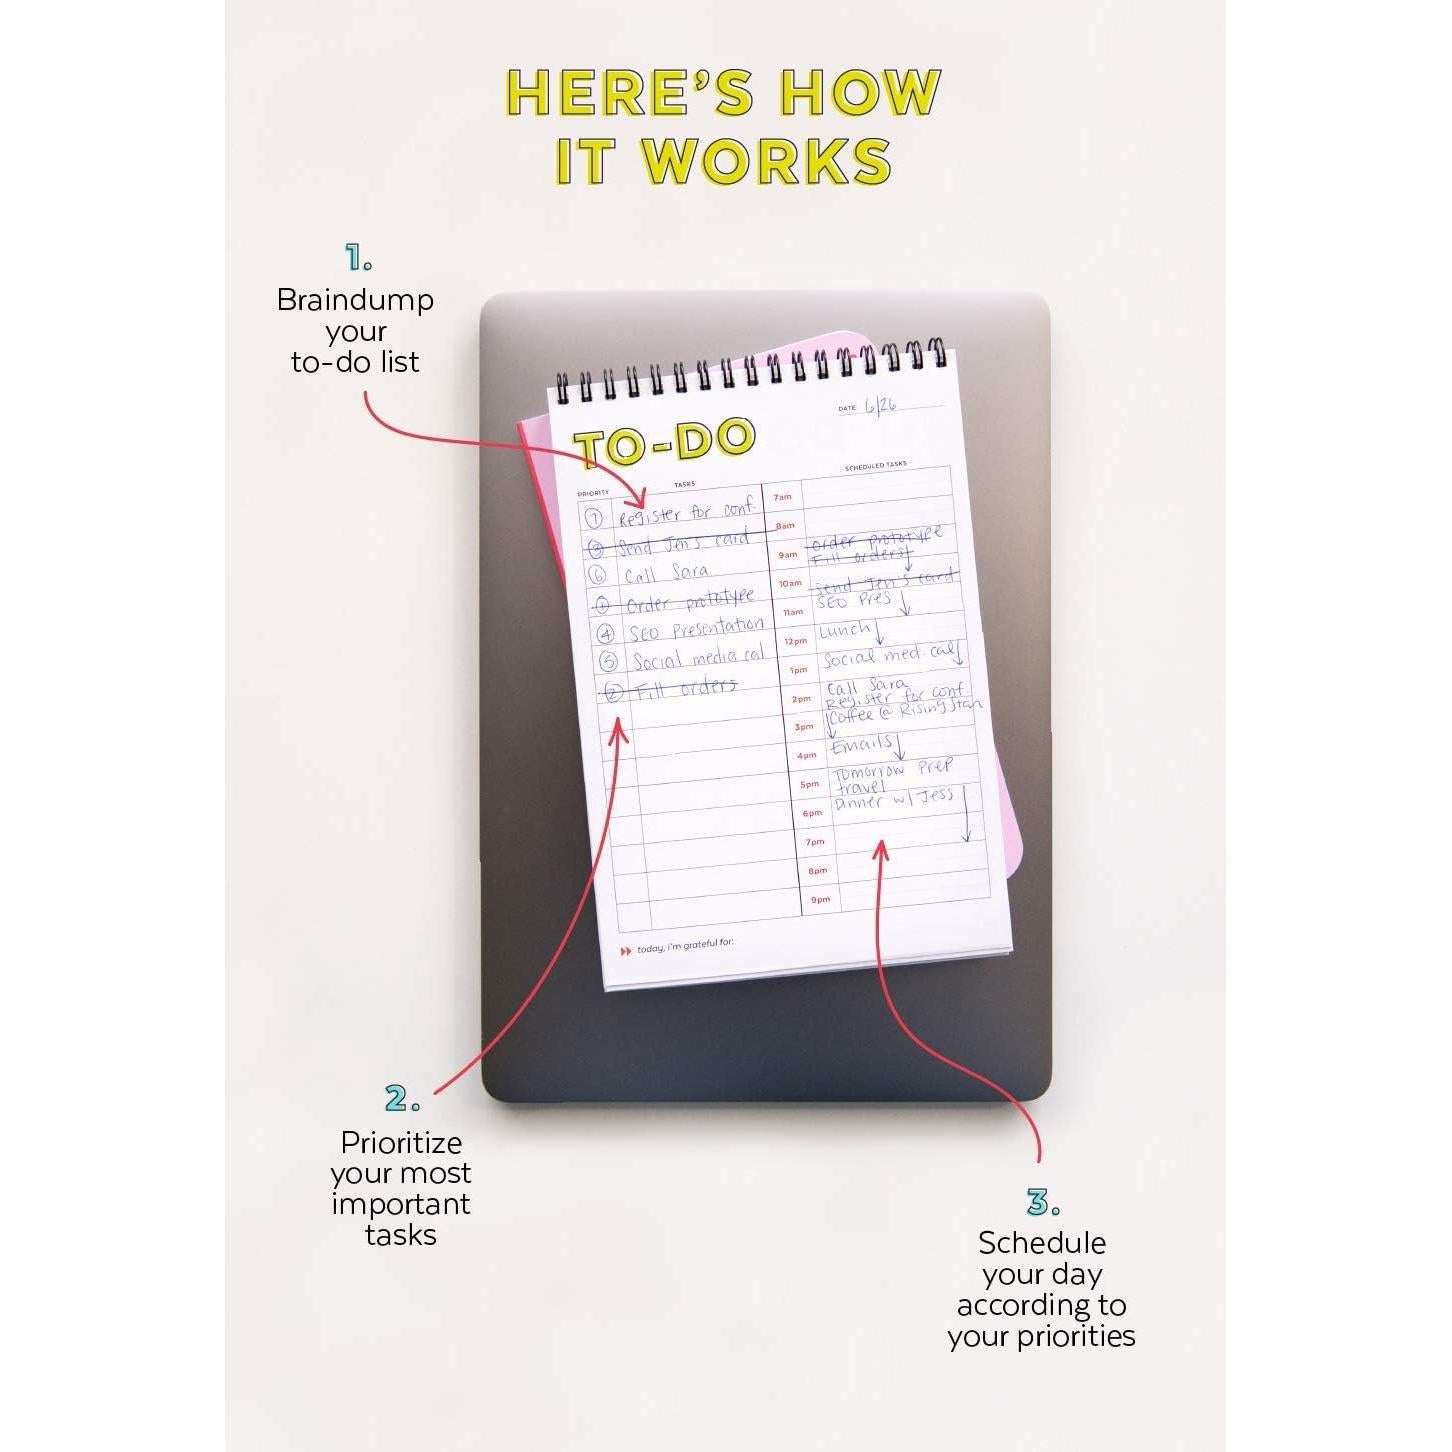 HERE'S HOW
IT WORKS
1.
Braindump
your
to-do list
TO-DO
DATE 6/26
PRIORITY TASKS
7 Register for conf.
3 Send Jen's card
6 Call Sara
1 Order prototype
4 SEO Presentation
5 Social media cal
2 Fill orders
SCHEDULED TASKS
7am
8am
9am Order prototype
Fill orders
10am Send Jen's card
11am SEO Pres
12pm Lunch
1pm Social med. cal
2pm Call Sara
Register for conf.
3pm Coffee @ Rising Star
4pm Emails
5pm Tomorrow Prep
travel
6pm Dinner w/ Jess
7pm
8pm
9pm
today, i'm grateful for:
2.
Prioritize
your most
important
tasks
3.
Schedule
your day
according to
your priorities